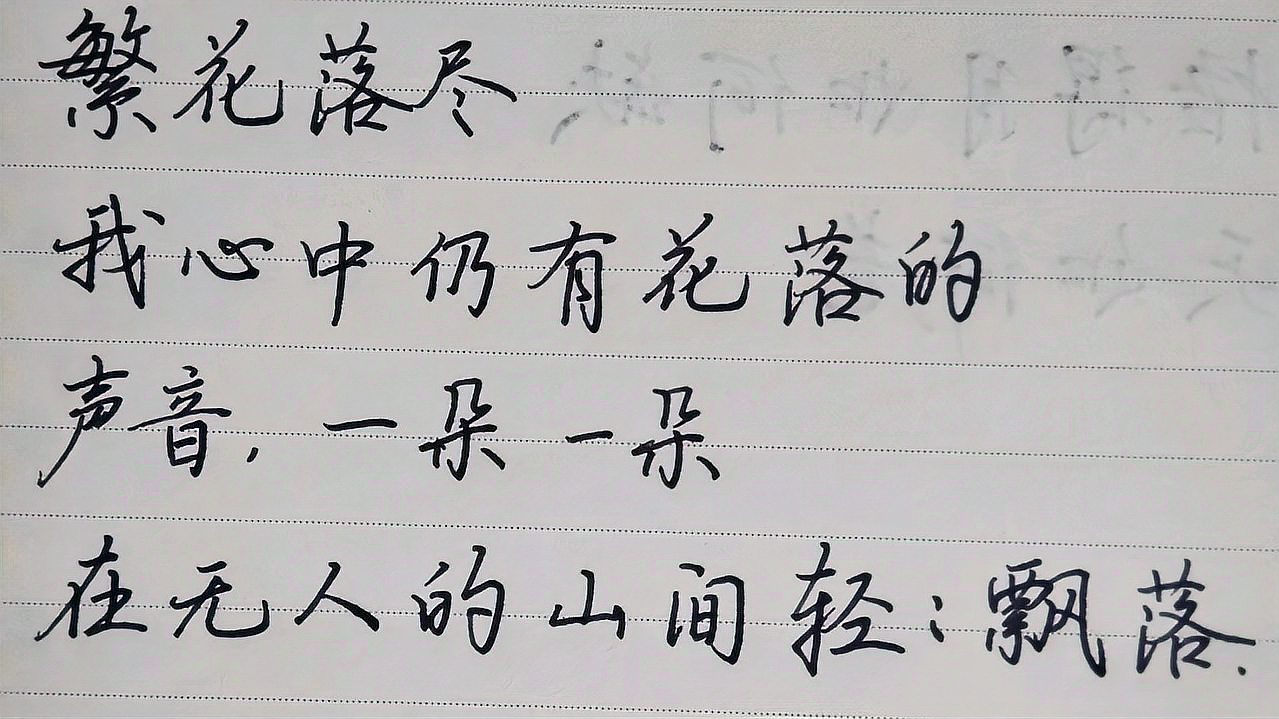 繁花落尽
我心中仍有花落的
声音,一朵一朵
在无人的山间轻:飘落.